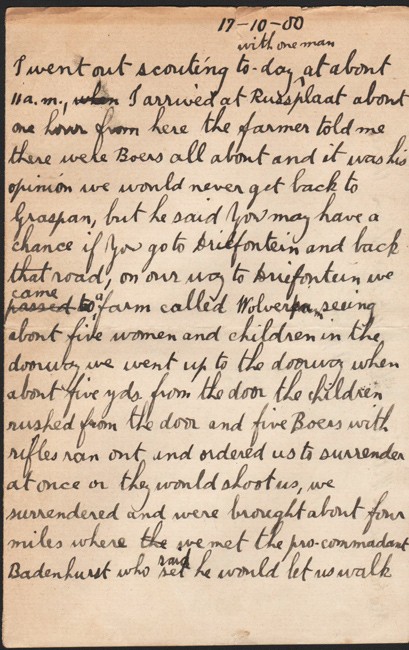 17-10-00
with one man
I went out scouting to-day, at about
11 a.m., when I arrived at Russplaat about
one hour from here the farmer told me
there were Boers all about and it was his
opinion we would never get back to
Graspan, but he said You may have a
chance if You go to Driefontein and back
that road, on our way to Driefontein we
came
passed to a farm called seeing
about five women and children in the
doorway we went up to the doorway when
about five yds. from the door the children
rushed from the door and five Boers with
rifles ran out and ordered us to surrender
at once or they would shoot us, we
surrendered and were brought about four
miles where the we met the pro-commadant
said
Badenhurst who set he would let us walk